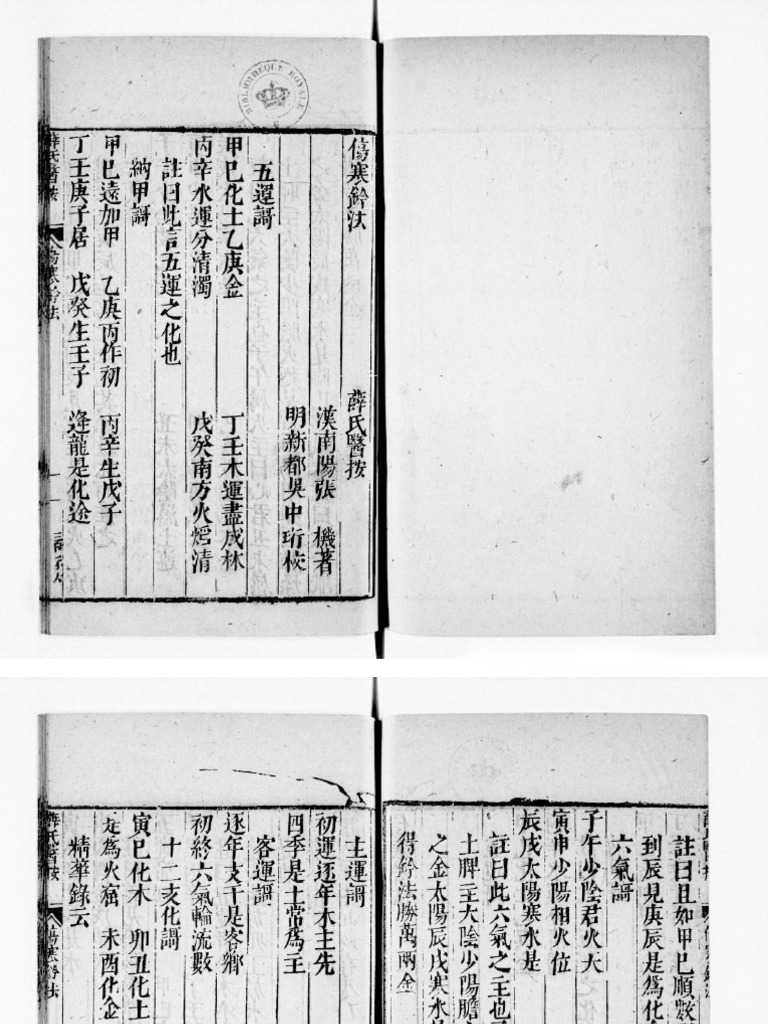 BIBLIOTHEQUE ROYALE
傷寒鈐法 薛氏醫按
漢南陽張 機著
明新都吳中珩校
五運謌
甲巳化土乙庚金 丁壬木運盡成林
丙辛水運分清濁 戊癸南方火熖清
註曰此言五運之化也
納甲謌
甲巳還加甲 乙庚丙作初 丙辛生戊子
丁壬庚子居 戊癸生壬子 逢龍是化途
薛氏醫按 傷寒鈐法 一
註曰且如甲巳順數
到辰見庚辰是爲化
六氣謌
子午少陰君火天
寅申少陽相火位
辰戌太陽寒水是
註曰此六氣之主也
土脾主大陰少陽膽
之金太陽辰戌寒水
得鈐法勝萬兩金
主運謌
初運逐年木主先
四季是土常爲主
客運謌
逐年支干是客鄉
初終六氣輪流數
十二支化謌
寅巳化木 卯丑化土
是爲火窟 未酉化金
精華錄云
薛氏醫按 傷寒鈐法